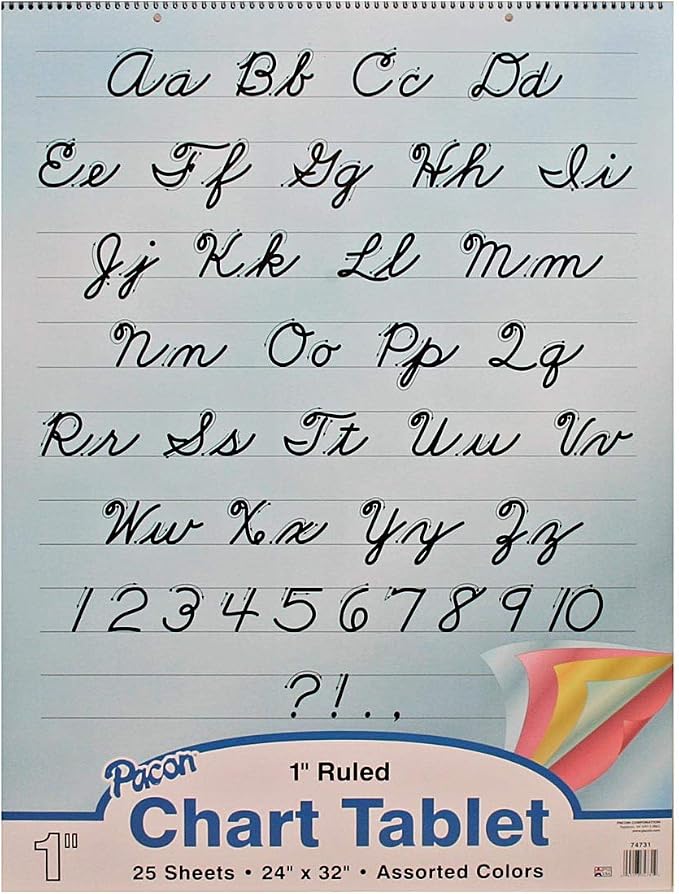 Aa Bb Cc Dd
Ee Ff Gg Hh Ii
Jj Kk Ll Mm
Nn Oo Pp Qq
Rr Ss Tt Uu Vv
Ww Xx Yy Zz
1 2 3 4 5 6 7 8 9 10
? ! . ,
Pacon
1" Ruled
Chart Tablet
1"
25 Sheets • 24" x 32" • Assorted Colors
PACON CORPORATION
74731